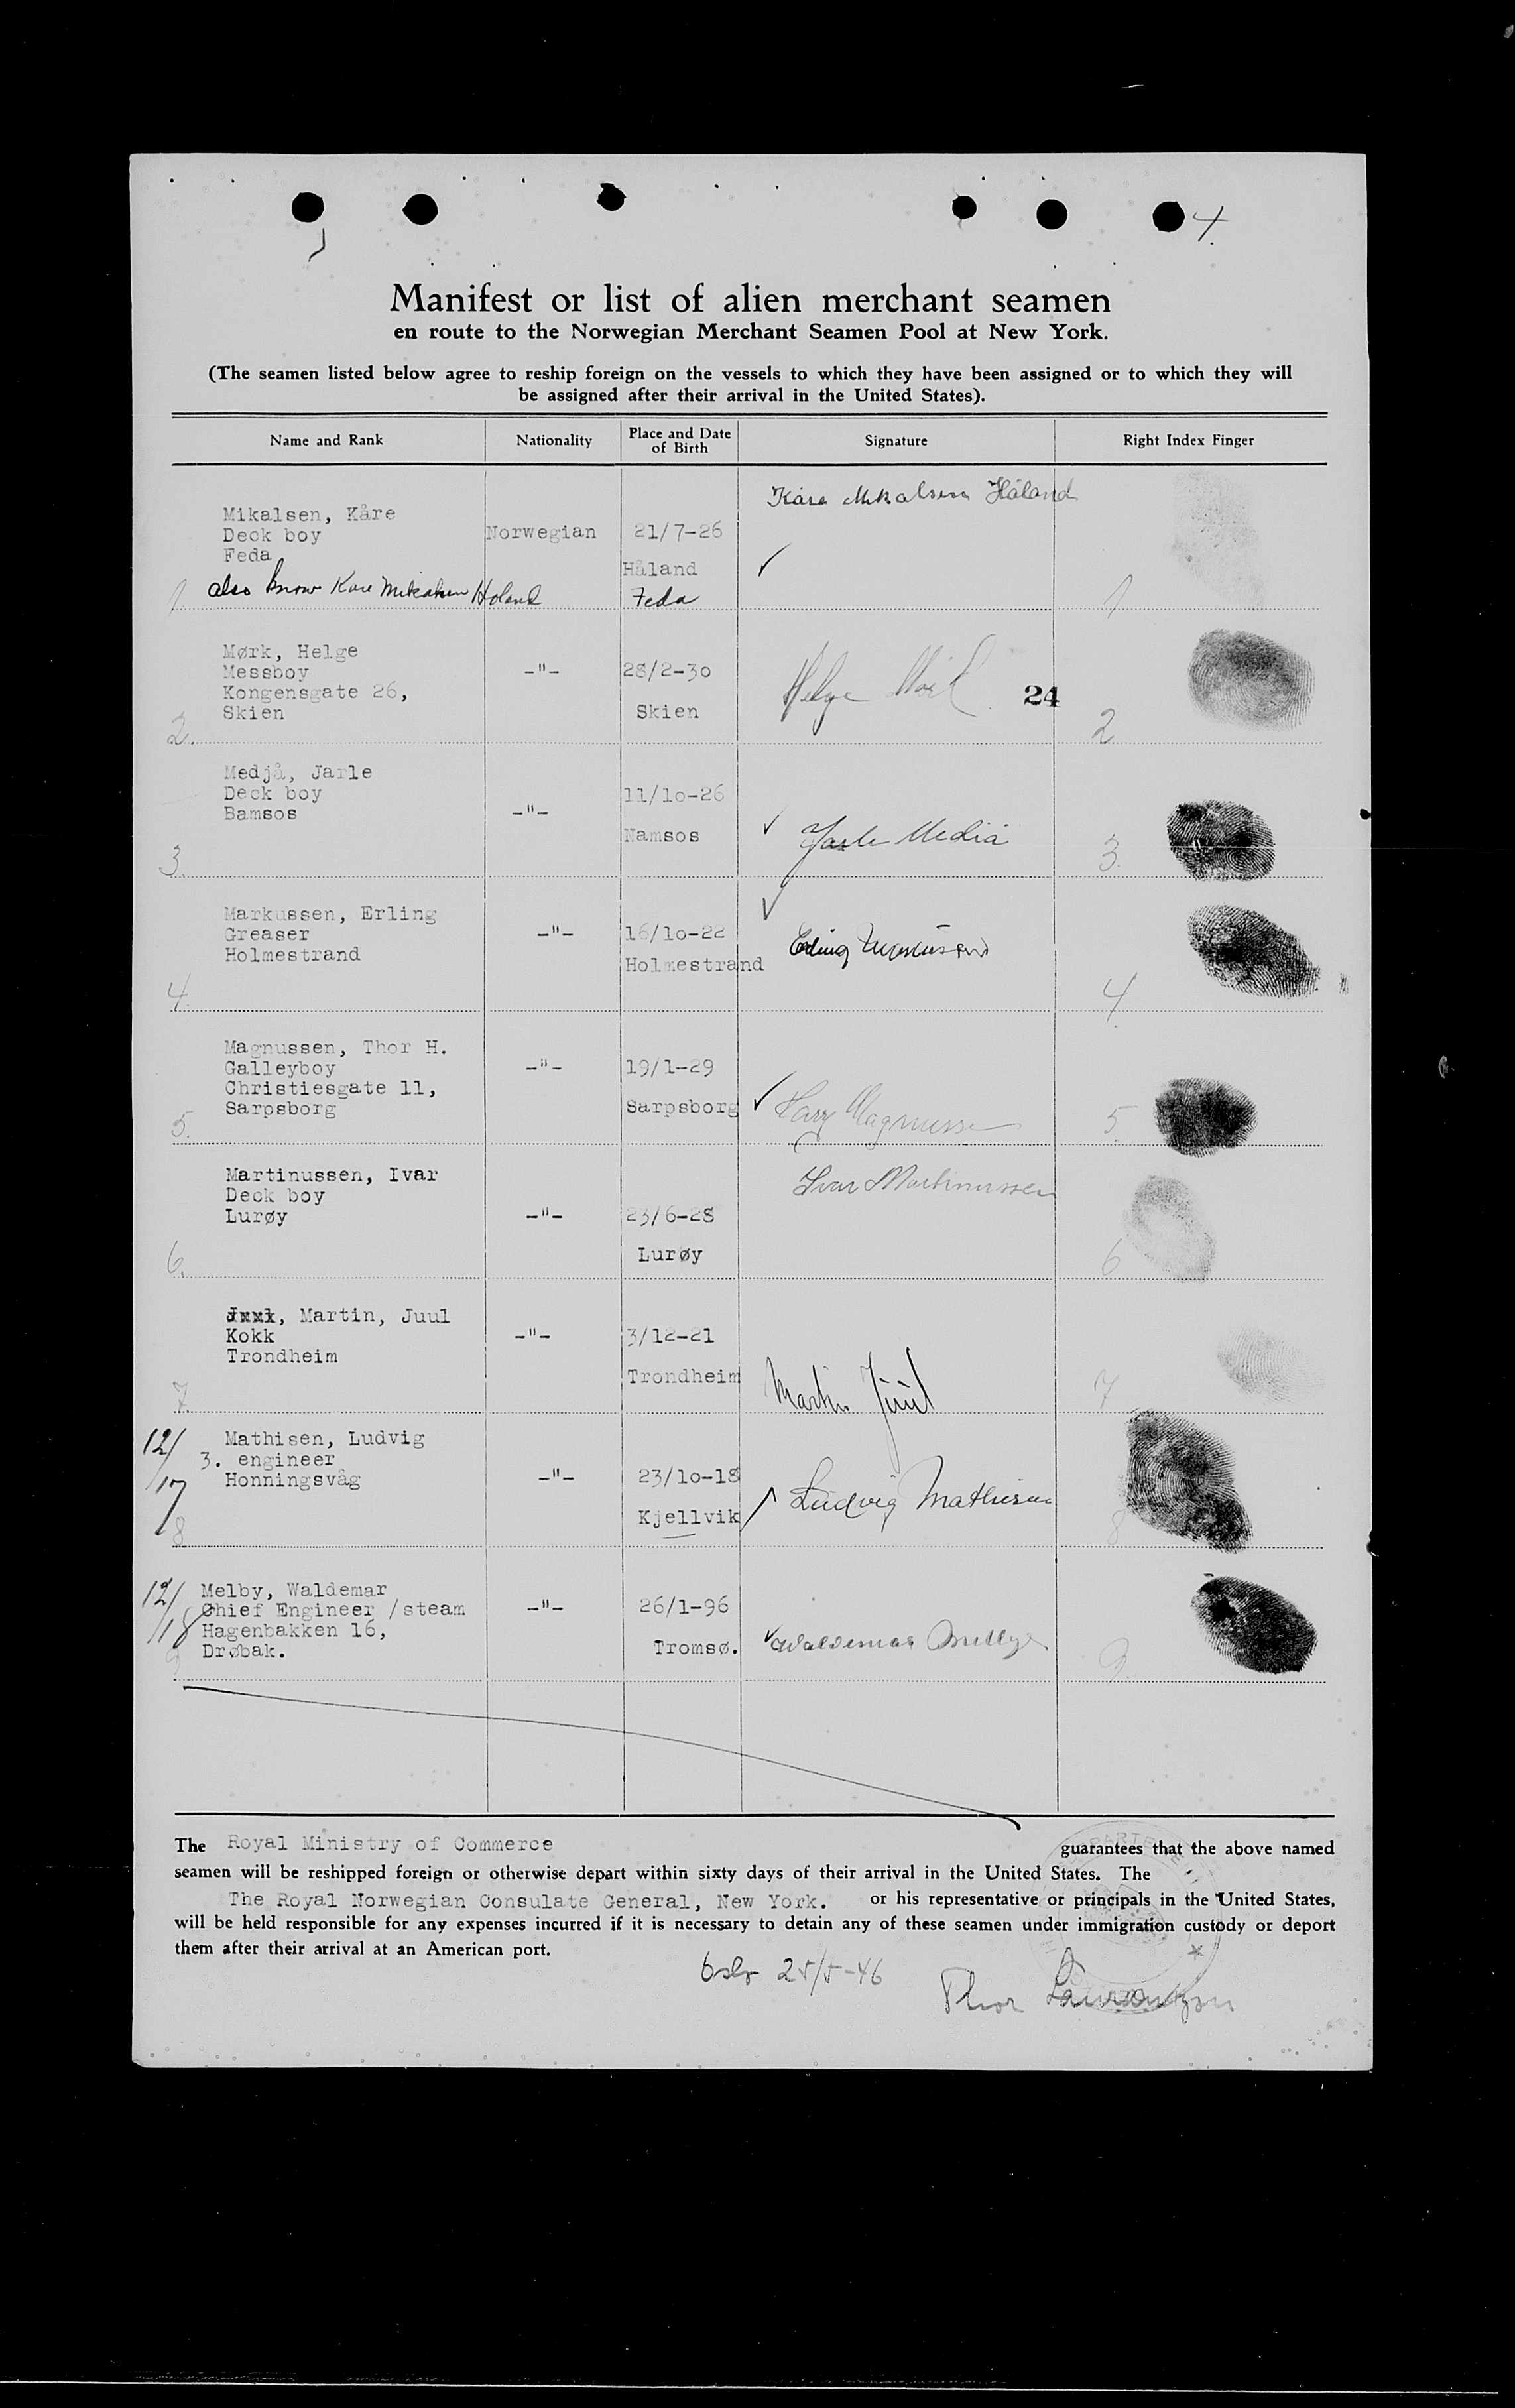 4.
Manifest or list of alien merchant seamen
en route to the Norwegian Merchant Seamen Pool at New York.
(The seamen listed below agree to reship foreign on the vessels to which they have been assigned or to which they will
be assigned after their arrival in the United States).
Name and Rank Nationality Place and Date of Birth Signature Right Index Finger
Kåre Mikalsen Håland
Mikalsen, Kåre
Deck boy Norwegian 21/7-26
Feda
Håland ✓
1. also know Kare Mikalsen Holand Feda 1
Mørk, Helge
Messboy -"- 28/2-30
Kongensgate 26, Helge Mørk 24
Skien Skien
2. 2
Medjå, Jarle
Deck boy 11/10-26
Bamsos -"-
Namsos ✓ Jarle Mediå
3. 3.
Markussen, Erling ✓
Greaser -"- 16/10-22
Holmestrand Holmestrand Erling Markussen
4. 4.
Magnussen, Thor H.
Galleyboy -"- 19/1-29
Christiesgate 11,
Sarpsborg Sarpsborg ✓ Magnussen
5. 5.
Martinussen, Ivar Ivar Martinussen
Deck boy
Lurøy -"- 23/6-28
Lurøy
6. 6
, Martin, Juul
Kokk -"- 3/12-21
Trondheim
Trondheim Martin Juul
7. 7
12/17 Mathisen, Ludvig
3. engineer
Honningsvåg -"- 23/10-18
Kjellvik Ludvig Mathisen
8 8
12/18 Melby, Waldemar
Chief Engineer /steam -"- 26/1-96
Hagenbakken 16,
Drøbak. Tromsø. ✓ Waldemar Melbye
9 9
The Royal Ministry of Commerce guarantees that the above named
seamen will be reshipped foreign or otherwise depart within sixty days of their arrival in the United States. The
The Royal Norwegian Consulate General, New York. or his representative or principals in the United States,
will be held responsible for any expenses incurred if it is necessary to detain any of these seamen under immigration custody or deport
them after their arrival at an American port.
Oslo 25/5-46
Thor Laurantzon